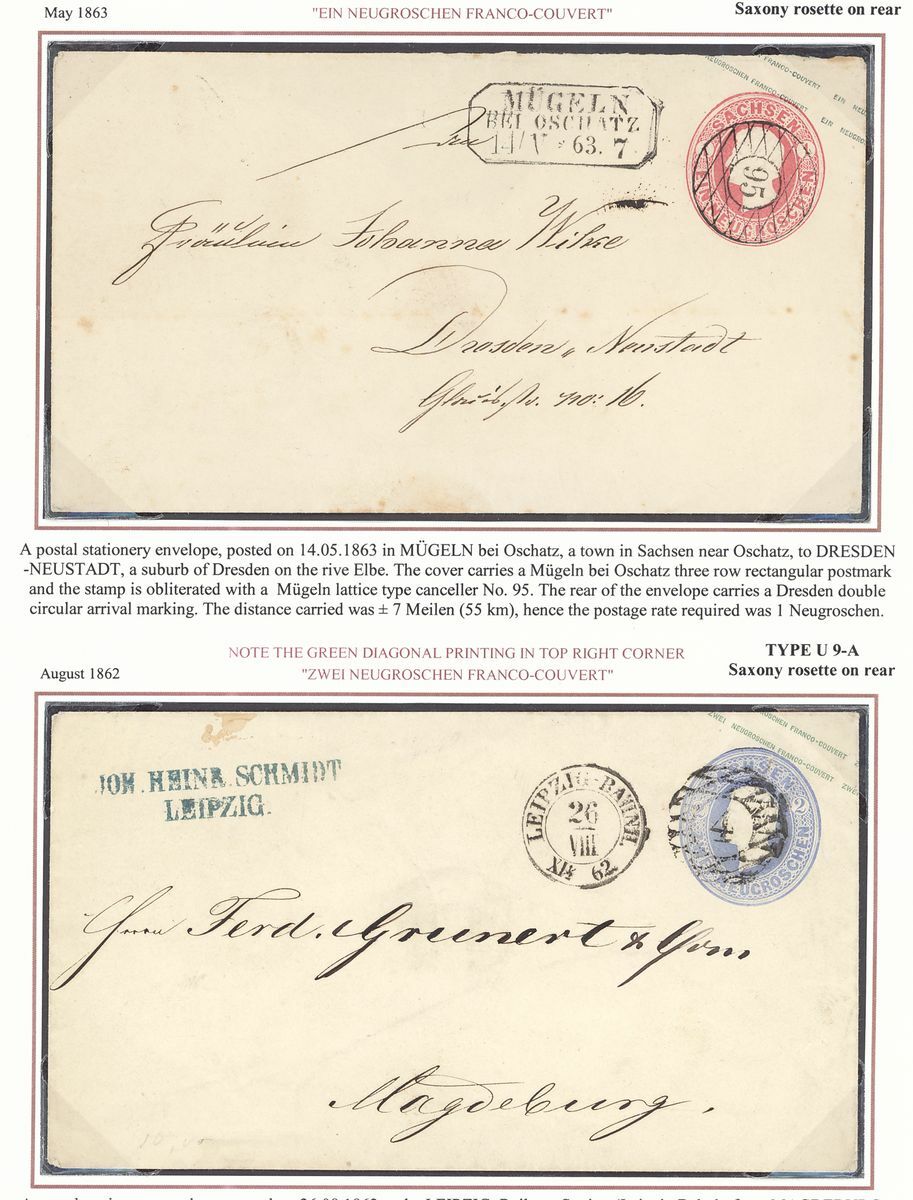 May 1863
"EIN NEUGROSCHEN FRANCO-COUVERT"
Saxony rosette on rear
NEUGROSCHEN FRANCO-COUVERT EIN NEU
EIN NEUGRO
MÜGELN
BEI OSCHATZ
14/V 63. 7
SACHSEN
EIN NEUGROSCHEN
95
An
Fräulein Johanna Wilke
Dresden, Neustadt
no: 16.
A postal stationery envelope, posted on 14.05.1863 in MÜGELN bei Oschatz, a town in Sachsen near Oschatz, to DRESDEN
-NEUSTADT, a suburb of Dresden on the rive Elbe. The cover carries a Mügeln bei Oschatz three row rectangular postmark
and the stamp is obliterated with a Mügeln lattice type canceller No. 95. The rear of the envelope carries a Dresden double
circular arrival marking. The distance carried was ± 7 Meilen (55 km), hence the postage rate required was 1 Neugroschen.
NOTE THE GREEN DIAGONAL PRINTING IN TOP RIGHT CORNER
TYPE U 9-A
August 1862
"ZWEI NEUGROSCHEN FRANCO-COUVERT"
Saxony rosette on rear
GROSCHEN FRANCO-COUVERT
ZWEI NEUGROSCHEN FRANCO-COUVERT
ZWEI
JOH. HEINR. SCHMIDT
LEIPZIG.
LEIPZIG-BAHNH.
26
VIII
62.
4
NEUGROSCHEN
Herrn Ferd. Grunert & Com
Magdeburg.